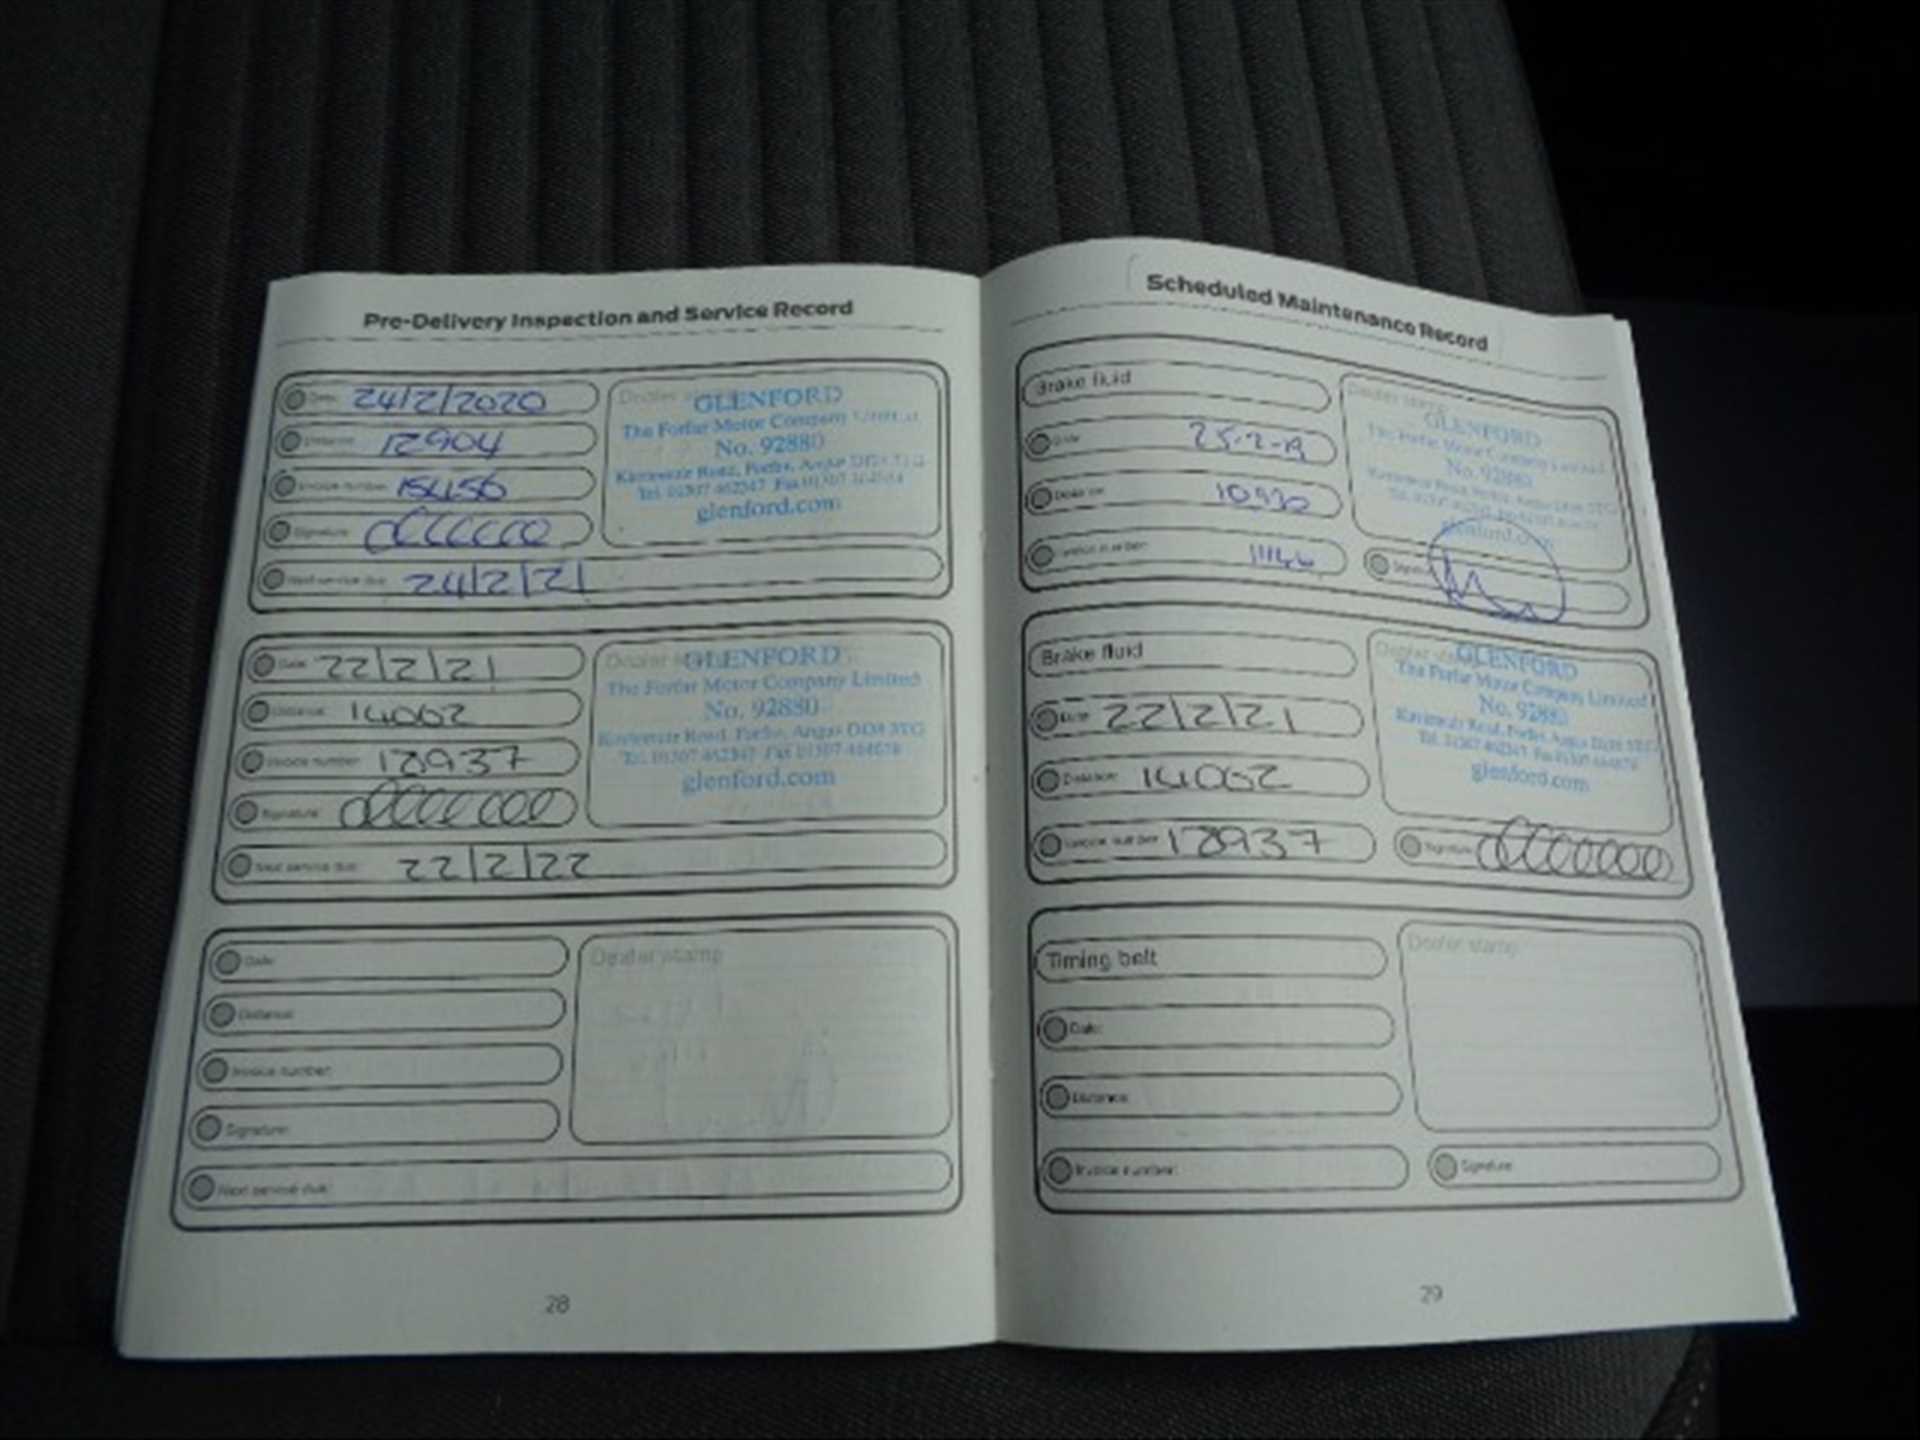 Pre-Delivery Inspection and Service Record
Date: 24/2/2020
Distance: 12904
Invoice number: 15456
Signature:
Next service due: 24/2/21
Dealer stamp
GLENFORD
The Forfar Motor Company Limited
No. 92880
Kirriemuir Road, Forfar, Angus DD8 3TG
Tel. 01307 462347 Fax 01307
glenford.com
Date: 22/2/21
Distance: 14062
Invoice number: 18937
Signature:
Next service due: 22/2/22
Dealer
GLENFORD
The Forfar Motor Company Limited
No. 92880
Kirriemuir Road, Forfar, Angus DD8 3TG
Tel. 01307 462347 Fax 01307
glenford.com
Date:
Distance:
Invoice number:
Signature:
Next service due:
Dealer stamp
28
Scheduled Maintenance Record
Brake fluid
Date: 25-2-19
Distance:
Invoice number:
Dealer stamp
GLENFORD
The Forfar Motor Company Limited
No. 92880
Kirriemuir Road, Forfar, Angus DD8 3TG
glenford.com
Signature:
Brake fluid
Date: 22/2/21
Distance: 14062
Invoice number: 18937
Dealer
GLENFORD
The Forfar Motor Company Limited
No. 92880
Kirriemuir Road, Forfar, Angus DD8 3TG
Tel. 01307 462347 Fax 01307
glenford.com
Signature:
Timing belt
Date:
Distance:
Invoice number:
Dealer stamp
Signature:
29